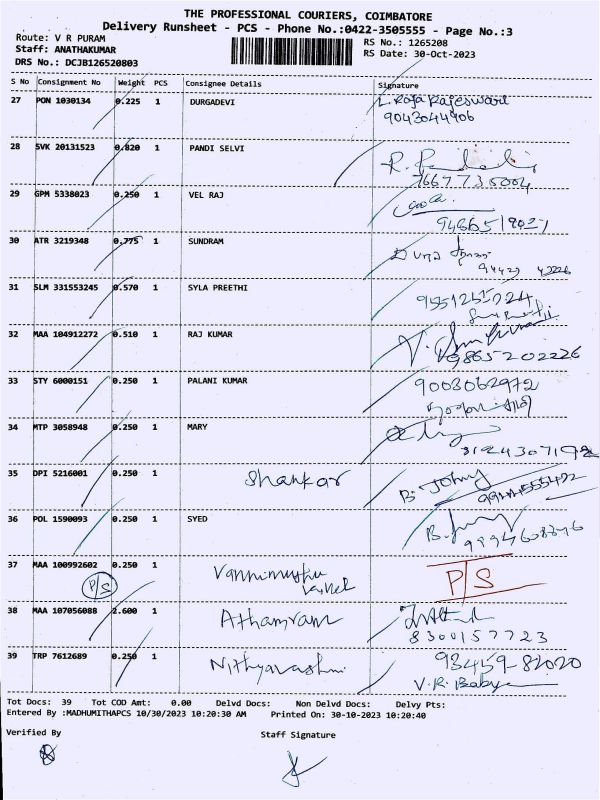 THE PROFESSIONAL COURIERS, COIMBATORE
Delivery Runsheet - PCS - Phone No.:0422-3505555 - Page No.:3
Route: V R PURAM
RS No.: 1265208
Staff: ANATHAKUMAR
RS Date: 30-Oct-2023
DRS No.: DCJB126520803
S No Consignment No Weight PCS Consignee Details Signature
27 PON 1030134 0.225 1 DURGADEVI L. Raja Rajeswari
9043044906
28 SVK 20131523 0.820 1 PANDI SELVI
7667735004
29 GPM 5338023 0.250 1 VEL RAJ
30 ATR 3219348 0.775 1 SUNDRAM
31 SLM 331553245 0.570 1 SYLA PREETHI
32 MAA 104912272 0.510 1 RAJ KUMAR
9865202226
33 STY 6000151 0.250 1 PALANI KUMAR 9003062972
34 MTP 3058948 0.250 1 MARY
8124307192
35 DPI 5216001 0.250 1 Shankar B. Johny
36 POL 1590093 0.250 1 SYED
37 MAA 100992602 0.250 1 P/S
P/S
38 MAA 107056088 2.600 1 Athamram
8300157723
39 TRP 7612689 0.250 1 Nithyarashmi 93459-82020
V.R. Babya
Tot Docs: 39 Tot COD Amt: 0.00 Delvd Docs: Non Delvd Docs: Delvy Pts:
Entered By :MADHUMITHAPCS 10/30/2023 10:20:30 AM Printed On: 30-10-2023 10:20:40
Verified By Staff Signature